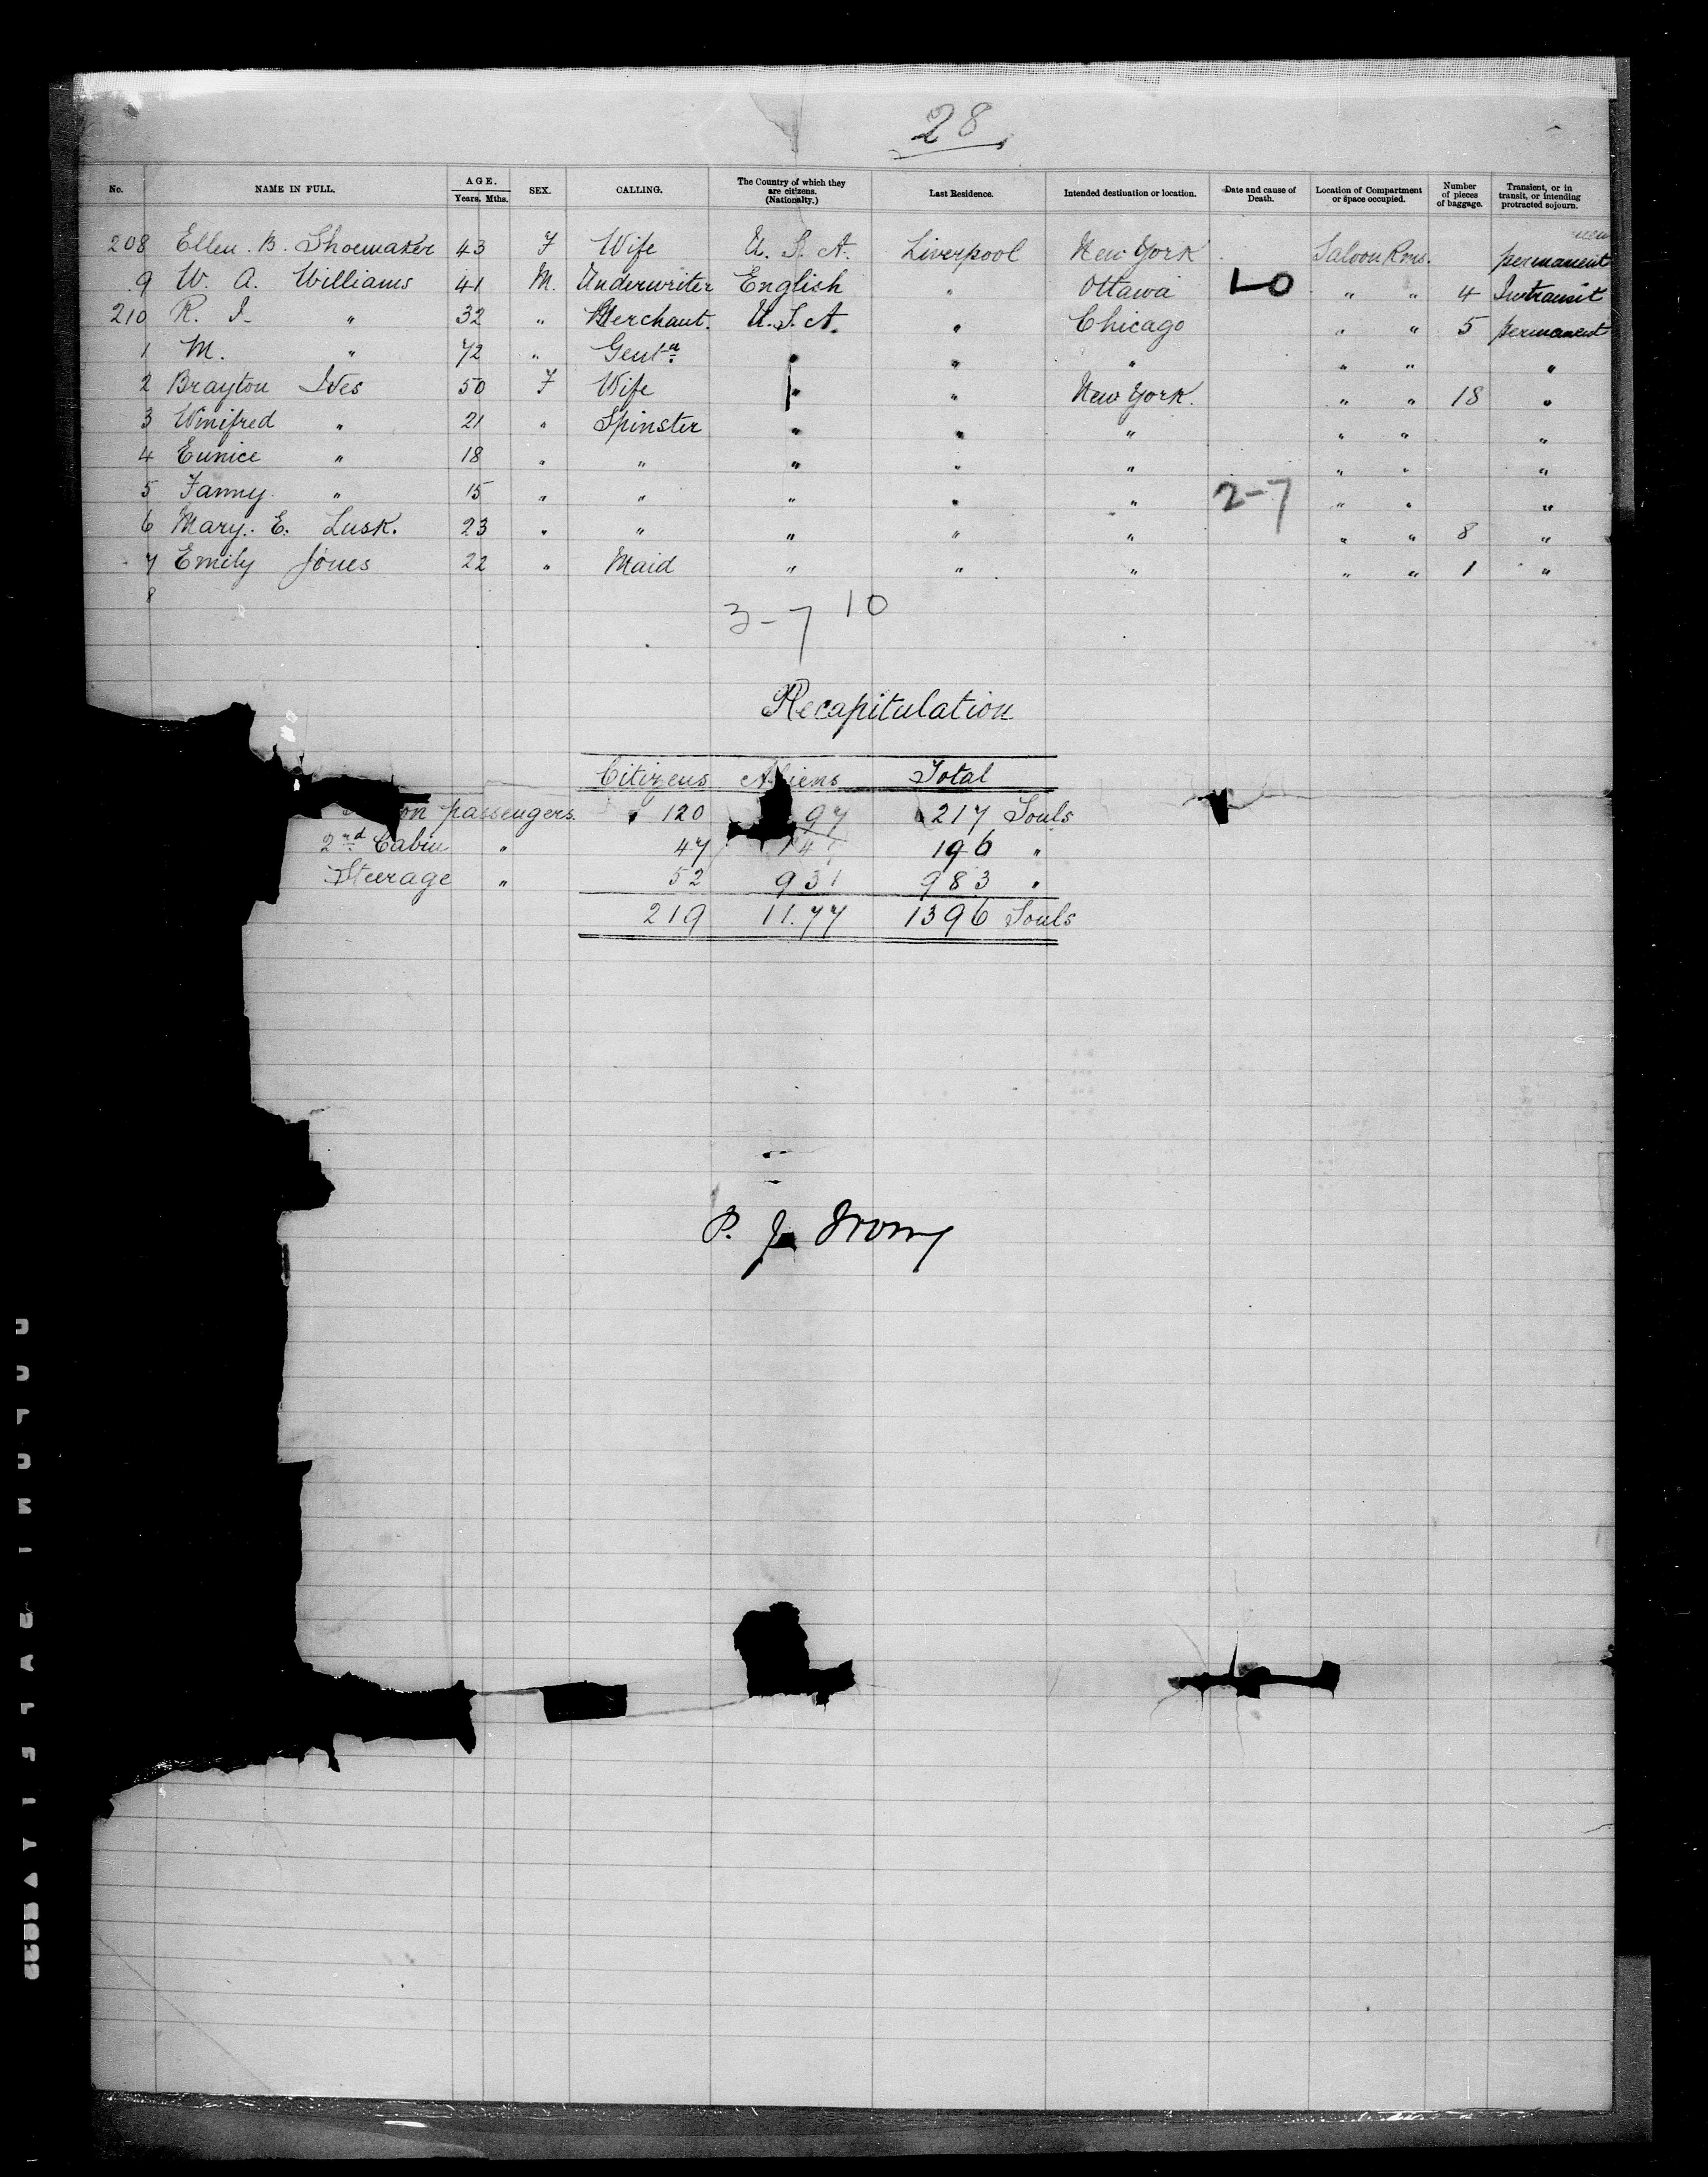 28
No. NAME IN FULL. AGE. Years. Mths. SEX. CALLING. The Country of which they are citizens. (Nationalty.) Last Residence. Intended destination or location. Date and cause of Death. Location of Compartment or space occupied. Number of pieces of baggage. Transient, or in transit, or intending protracted sojourn.
208 Ellen. B. Shoemaker 43 F Wife U. S. A. Liverpool New York Saloon Rms. permanent
9 W. A. Williams 41 M. Underwriter English " Ottawa 1-0 " " 4 Intransit
210 R. I. " 32 " Merchant. U.S.A. " Chicago " " 5 permanent
1 M. " 72 " Gentn " " " " " "
2 Brayton Ives 50 F Wife " " New York. " " 18 "
3 Winifred " 21 " Spinster " " " " " "
4 Eunice " 18 " " " " " " " "
5 Fanny " 15 " " " " " 2-7 " " "
6 Mary. E. Lusk. 23 " " " " " " " 8 "
7 Emily Jones 22 " Maid " " " " " 1 "
8
3-7 10
Recapitulation
Citizens Aliens Total
passengers. 120 97 217 Souls
2nd Cabin " 47 196 "
Steerage " 52 931 983 "
219 11.77 1396 Souls
P. J.